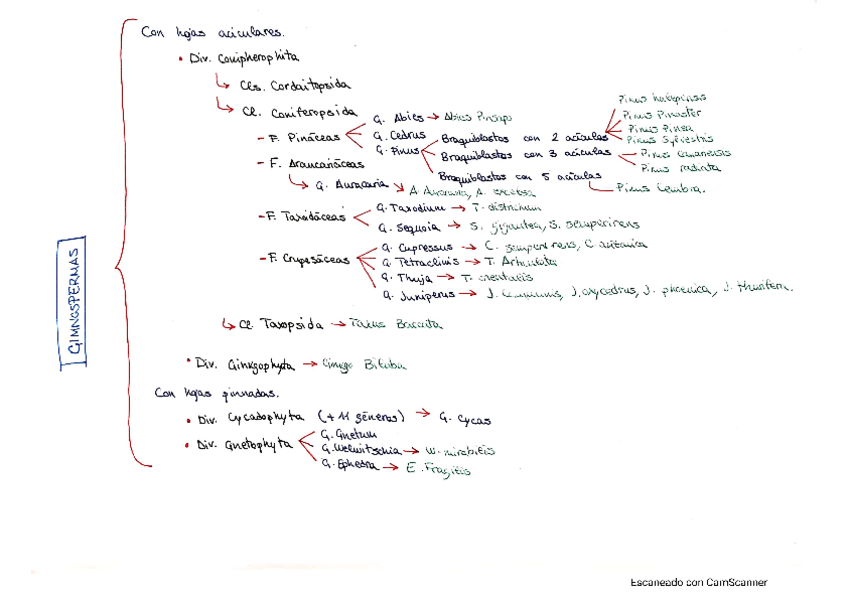 GIMNOSPERMAS
Con hojas aciculares.
• Div. Conipherophita
Cls. Cordaitopsida
Cl. Coniferopsida
- F. Pináceas
G. Abies → Abies Pinsapo
G. Cedrus
G. Pinus
Braquiblastos con 2 acículas
Pinus halepensis
Pinus Pinaster
Pinus Pinea
Pinus Sylvestris
Braquiblastos con 3 acículas
Pinus canariensis
Pinus radiata
Braquiblastos con 5 acículas
Pinus Cembra.
- F. Araucariáceas
G. Auracaria → A. Auracana, A. excelsa
- F. Taxodáceas
G. Taxodium → T. distichum
G. Sequoia → S. gigantea, S. sempervirens
- F. Crupesáceas
G. Cupressus → C. sempervirens, C. arizonica
G. Tetraclinis → T. Articulata
G. Thuja → T. orientalis
G. Juniperus → J. communis, J. oxycedrus, J. phoenica, J. thurifera.
Cl. Taxopsida → Taxus Baccata
• Div. Ginkgophyta → Ginkgo Biloba
Con hojas pinnadas.
• Div. Cycadophyta (+ 11 géneros) → G. Cycas
• Div. Gnetophyta
G. Gnetum
G. Welwitschia → W. mirabilis
G. Ephedra → E. Fragilis
Escaneado con CamScanner